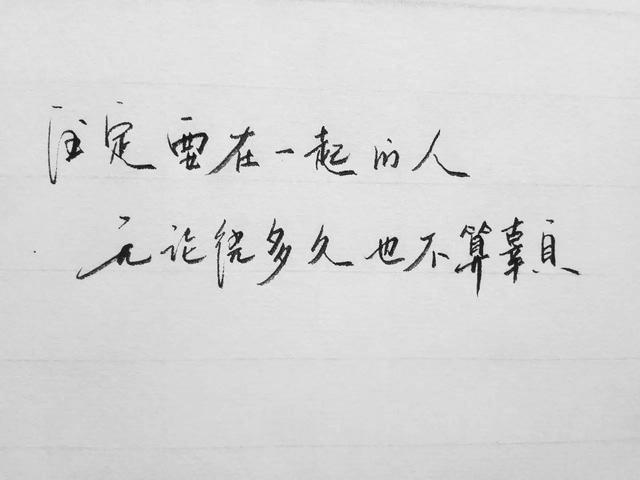 注定要在一起的人
无论绕多久也不算辜負